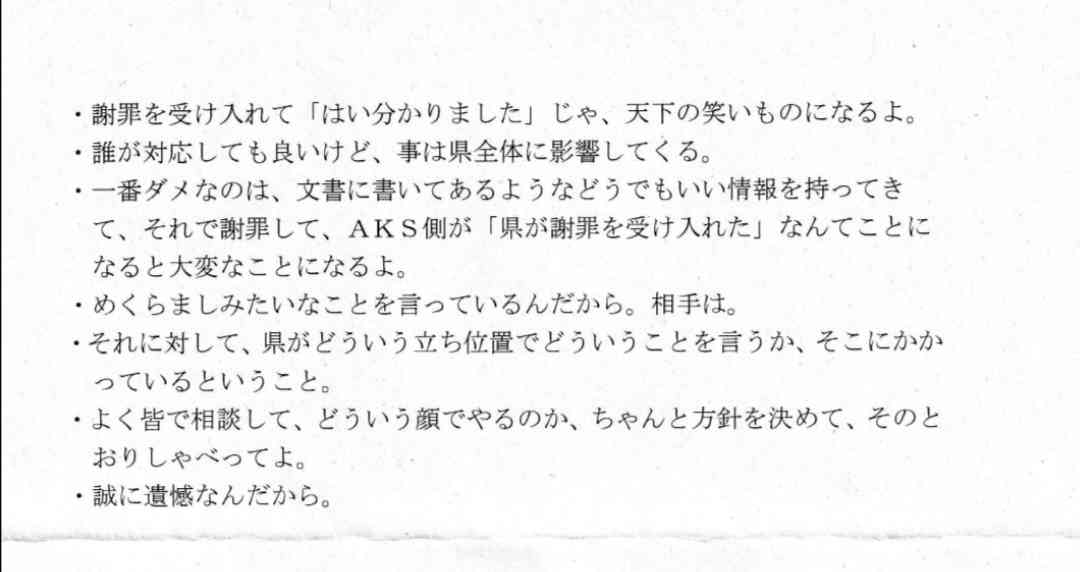 ・謝罪を受け入れて「はい分かりました」じゃ、天下の笑いものになるよ。
・誰が対応しても良いけど、事は県全体に影響してくる。
・一番ダメなのは、文書に書いてあるようなどうでもいい情報を持ってき
て、それで謝罪して、ＡＫＳ側が「県が謝罪を受け入れた」なんてことに
なると大変なことになるよ。
・めくらましみたいなことを言っているんだから。相手は。
・それに対して、県がどういう立ち位置でどういうことを言うか、そこにかか
っているということ。
・よく皆で相談して、どういう顔でやるのか、ちゃんと方針を決めて、そのと
おりしゃべってよ。
・誠に遺憾なんだから。